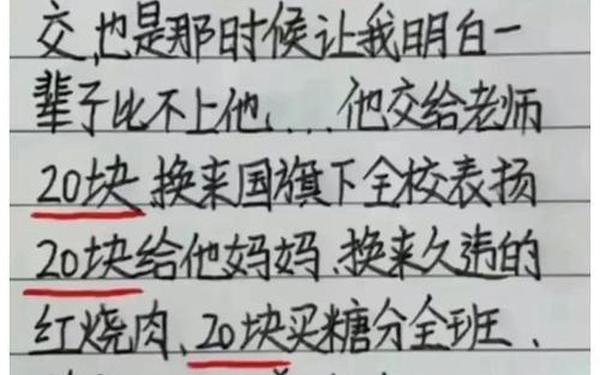 交,也是那时候让我明白一
辈子比不上他....他交给老师
20块,换来国旗下全校表扬
20块给他妈妈、换来久违的
红烧肉、20块买糖分全班、